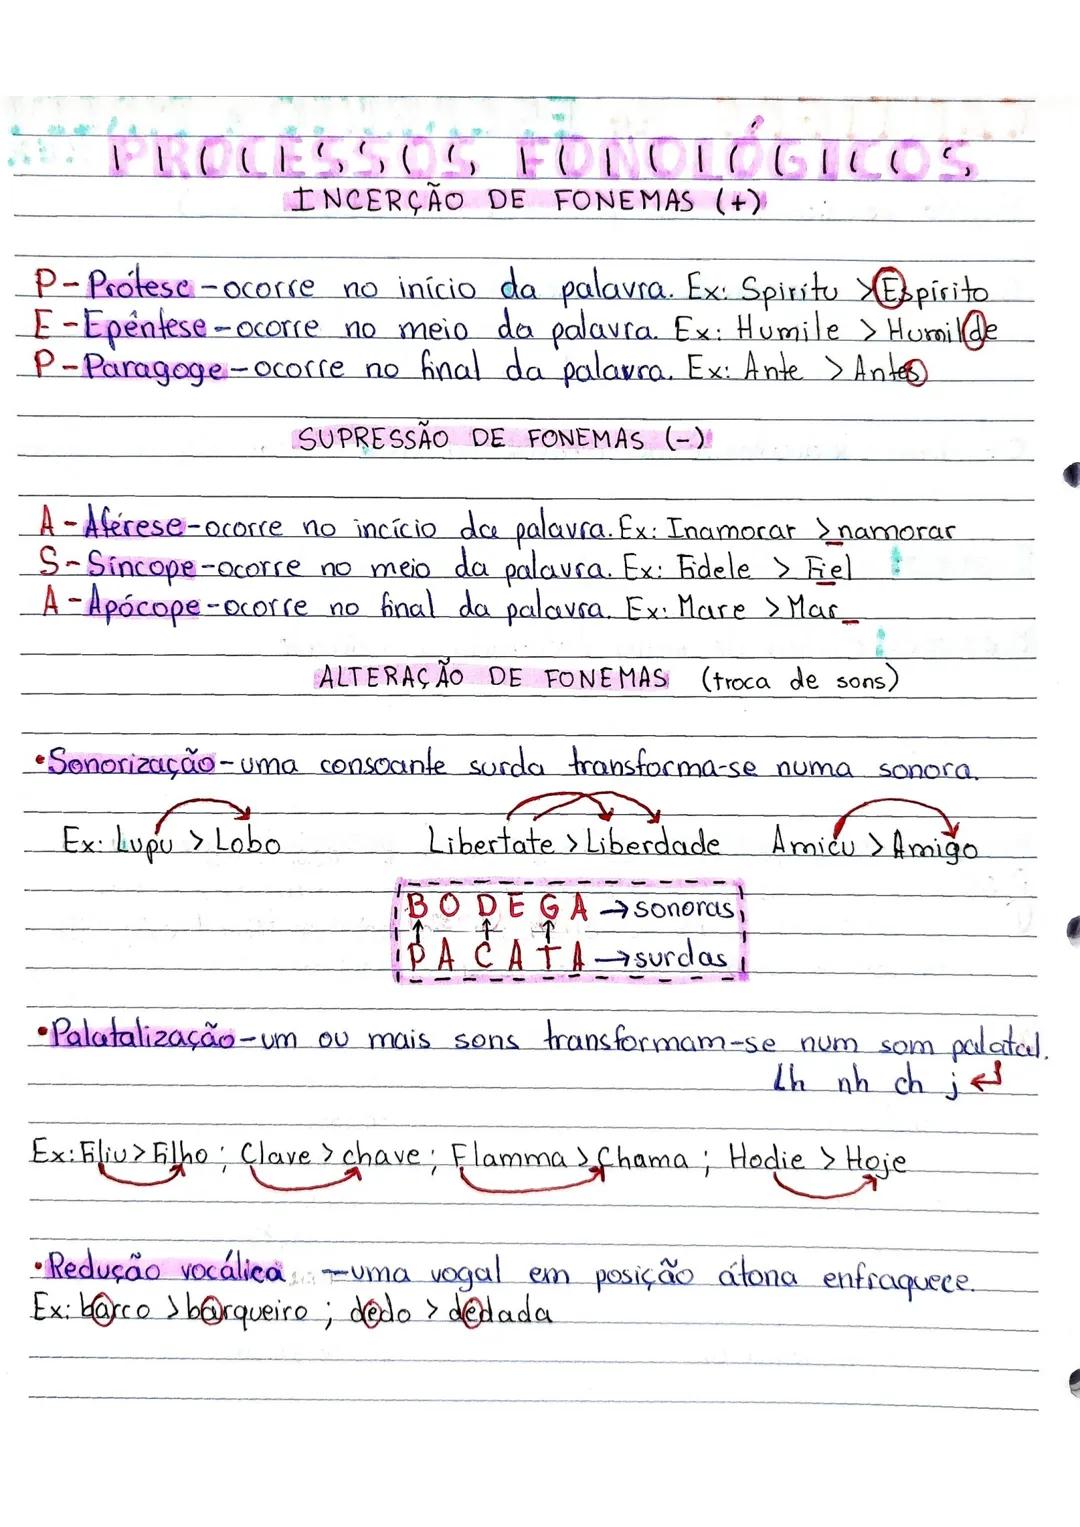 PROCESSOS FONOLÓGICOS
INCERÇÃO DE FONEMAS (+)
P-Prótese-ocorre no início da palavra. Ex: Spiritu >Espírito
E-Epêntese-ocorre no meio da palavra. Ex: Humile > Humilde
P-Paragoge-ocorre no final da palavra. Ex: Ante > Antes
SUPRESSÃO DE FONEMAS (-)
A-Aférese-ocorre no incício da palavra. Ex: Inamorar >_namorar
S-Síncope-ocorre no meio da palavra. Ex: Fidele > Fiel
A-Apócope-ocorre no final da palavra. Ex: Mare >Mar_
ALTERAÇÃO DE FONEMAS (troca de sons)
•Sonorização-uma consoante surda transforma-se numa sonora.
Ex: Lupu > Lobo Libertate > Liberdade Amicu > Amigo
BODEGA → sonoras
PACATA → surdas
•Palatalização-um ou mais sons transformam-se num som palatal.
lh nh ch j
Ex: Filiu > Filho ; Clave > chave ; Flamma > Chama ; Hodie > Hoje
•Redução vocálica -uma vogal em posição átona enfraquece.
Ex: barco > barqueiro ; dedo > dedada